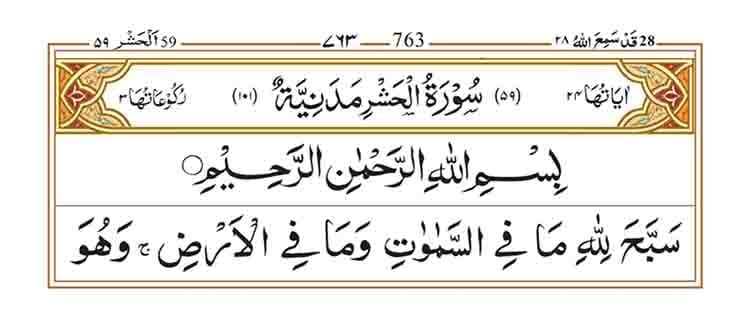 28 قَدْ سَمِعَ اللّٰهُ ۲۸ 763 — ۷۶۳ 59 اَلْحَشْر ۵۹
اٰيَاتُهَا ۲۴ (۵۹) سُوْرَةُ الْحَشْرِ مَدَنِيَّةٌ (۱۰۱) رُكُوْعَاتُهَا ۳
بِسْمِ اللّٰهِ الرَّحْمٰنِ الرَّحِيْمِ ۝
سَبَّحَ لِلّٰهِ مَا فِي السَّمٰوٰتِ وَمَا فِي الْاَرْضِ ۚ وَهُوَ